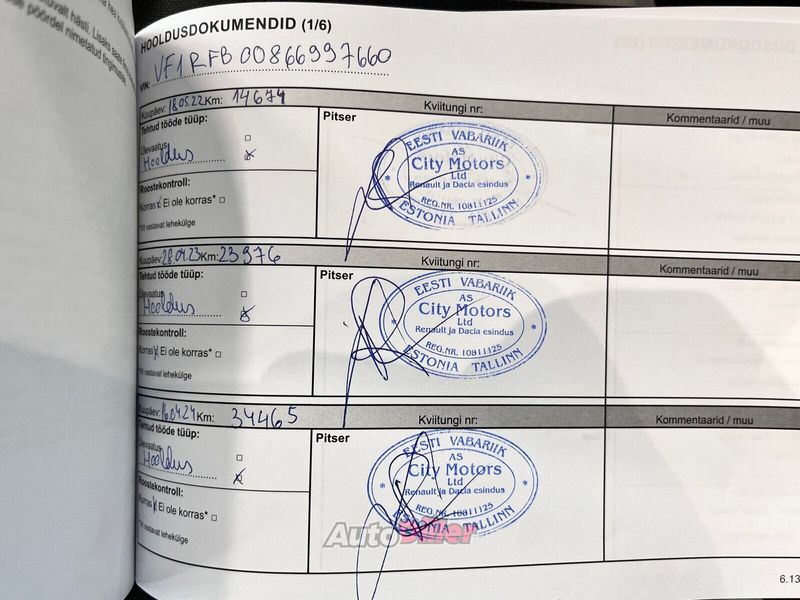 HOOLDUSDOKUMENDID (1/6)
VIN: VF1RFB00866997660
Kuupäev: 18.05.22 Km: 14674 Kviitungi nr: Kommentaarid / muu
Tehtud tööde tüüp: Pitser
Ülevaatus □
Hooldus
Roostekontroll:
Korras Ei ole korras* □
*Vt vastavat lehekülge
EESTI VABARIIK
AS
City Motors
Ltd
Renault ja Dacia esindus
REG.NR. 10811125
ESTONIA TALLINN
Kuupäev: 28.04.23 Km: 23976 Kviitungi nr: Kommentaarid / muu
Tehtud tööde tüüp: Pitser
Ülevaatus □
Hooldus
Roostekontroll:
Korras Ei ole korras* □
*Vt vastavat lehekülge
EESTI VABARIIK
AS
City Motors
Ltd
Renault ja Dacia esindus
REG.NR. 10811125
ESTONIA TALLINN
Kuupäev: 16.04.24 Km: 34465 Kviitungi nr: Kommentaarid / muu
Tehtud tööde tüüp: Pitser
Ülevaatus □
Hooldus
Roostekontroll:
Korras Ei ole korras* □
*Vt vastavat lehekülge
EESTI VABARIIK
AS
City Motors
Ltd
Renault ja Dacia esindus
REG.NR. 10811125
ESTONIA TALLINN
AutoDiiler
6.13